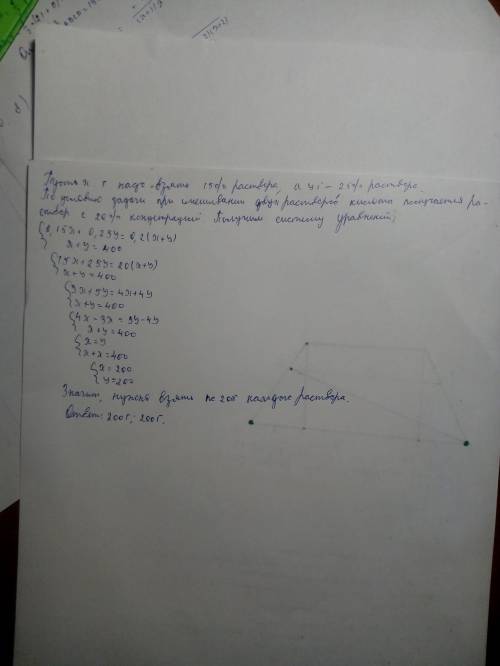 Пусть x г надо взять 15% раствора, а y г - 25% раствора.
По условию задачи при смешивании двух растворов кислоты получается ра-
створ с 20% концетрацией. Получим систему уравнений:
{0,15x + 0,25y = 0,2(x+y)
x+y = 400
{15x+25y = 20(x+y)
x+y = 400
{3x+5y = 4x+4y
x+y = 400
{4x-3x = 5y-4y
x+y = 400
{x=y
x+x=400
{x=200
y=200
Значит, нужно взять по 200 каждого раствора.
Ответ: 200г; 200г.